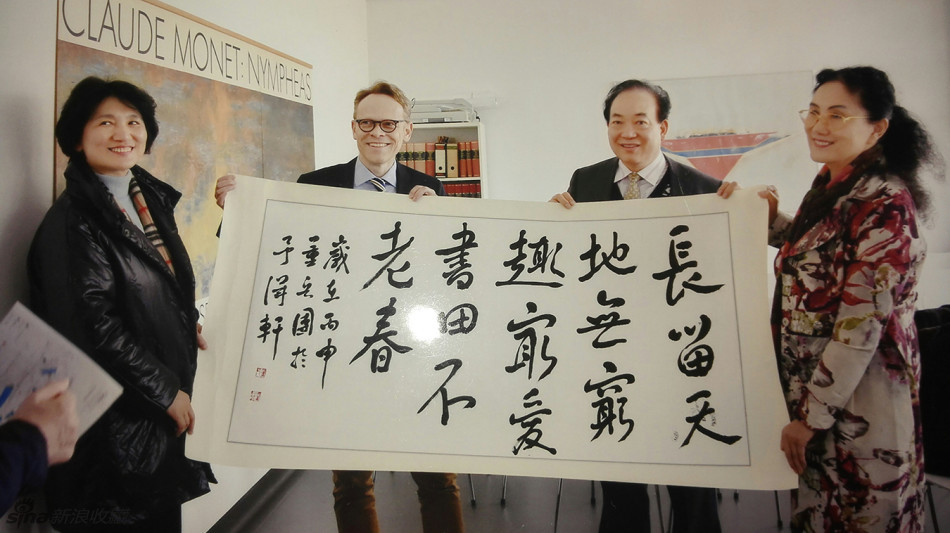 CLAUDE MONET: NYMPHEAS
長留天
地無窮
趣㝡愛
書田不
老春
歲在丙申
國於
軒
sina 新浪收